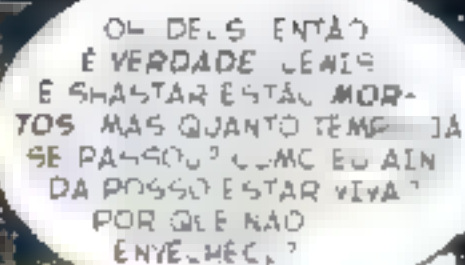 OH DEUS ENTÃO
É VERDADE
E SHASTAR ESTÃO MOR-
TOS MAS QUANTO TEMPO JÁ
SE PASSOU? COMO EU AIN
DA POSSO ESTAR VIVA?
POR QUE NÃO
ENVELHECI?